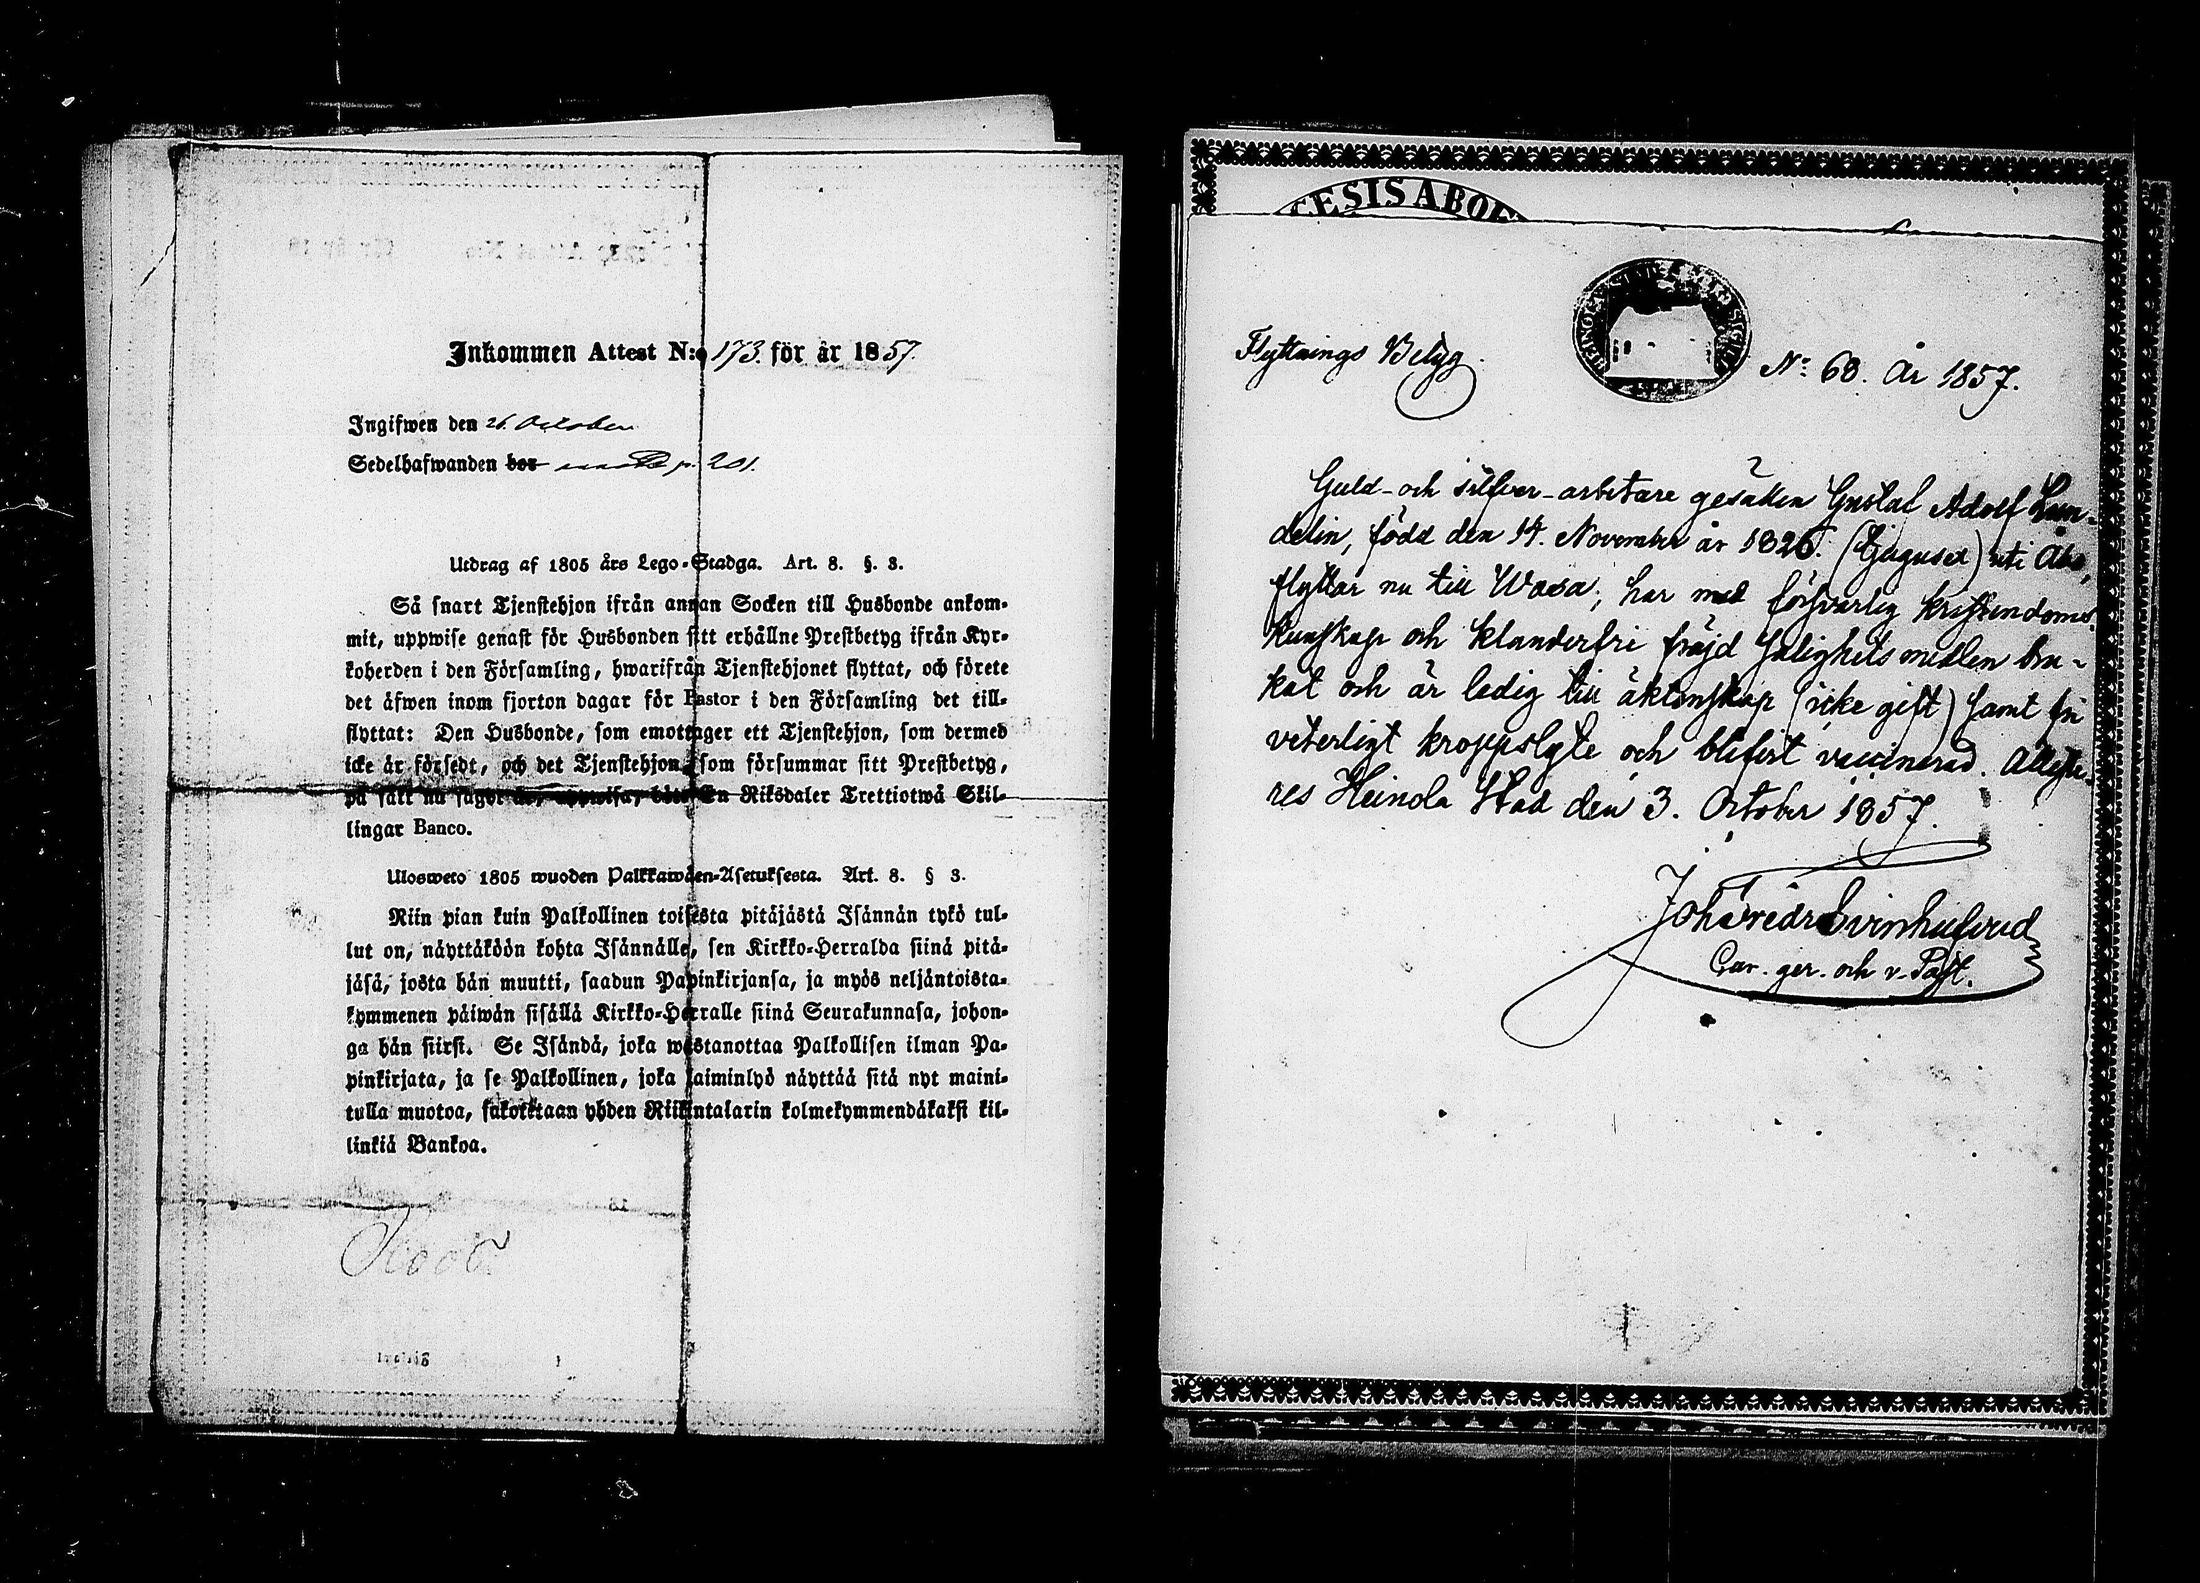 Inkommen Attest N:o 173. för år 1857.
Ingifwen den 26 October
Sedelhafwanden bor p. 201.
Utdrag af 1805 års Lego-Stadga. Art. 8. §. 3.
Så snart Tjenstehjon ifrån annan Socken till Husbonde ankom-
mit, uppwise genast för Husbonden sitt erhållne Prestbetyg ifrån Kyr-
koherden i den Församling, hwarifrån Tjenstehjonet flyttat, och förete
det äfwen inom fjorton dagar för Pastor i den Församling det till-
flyttat: Den Husbonde, som emottager ett Tjenstehjon, som dermed
icke är försedt, och det Tjenstehjon, som försummar sitt Prestbetyg,
på sätt nu sagdt är, uppwisa, böte En Riksdaler Trettiotwå Skil-
lingar Banco.
Ulosweto 1805 wuoden Palkkawäen-Asetuksesta. Art. 8. § 3.
Niin pian kuin Palkollinen toisesta pitäjästä Isännän tykö tul-
lut on, näyttäköön kohta Isännälle, sen Kirkko-Herralda siinä pitä-
jäsä, josta hän muutti, saadun Papinkirjansa, ja myös neljäntoista-
kymmenen päiwän sisällä Kirkko-Herralle siinä Seurakunnasa, johon-
ga hän siirst. Se Isändä, joka wastanottaa Palkollisen ilman Pa-
pinkirjata, ja se Palkollinen, joka laiminlyö näyttää sitä nyt maini-
tulla muotoa, sakotetaan yhden Riikintalarin kolmekymmendäkaksi kil-
linkiä Bankoa.
CESIS ABOE
Flyttnings Betyg.
N:o 68. år 1857.
Guld- och silfver-arbetare gesällen Gustaf Adolf Lun-
delin, född den 14. November år 1826. (tjugusex) uti Åbo,
flyttar nu till Wasa; har med försvarlig kristendoms-
kunskap och klanderfri fräjd salighets medlen bru-
kat och är ledig till äktenskap (icke gift) samt fri
veterligt kroppslyte och blifvit vaccinerad. Atteste-
res Heinola Stad den 3. October 1857.
Joh Fredr Svinhufvud
Cur. ger. och v. Past.